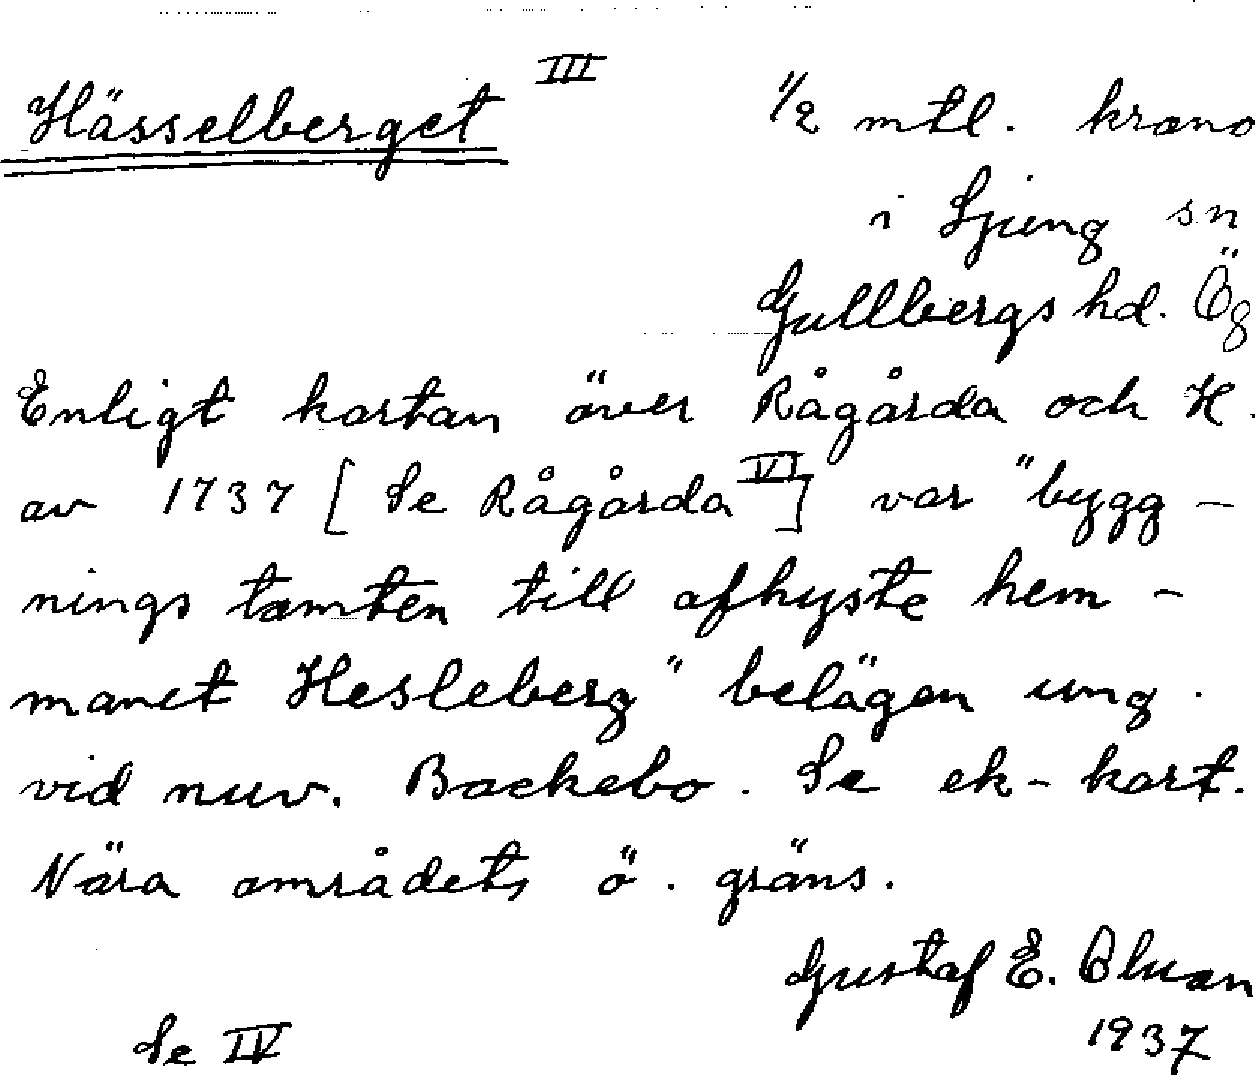 Hässelberget III 1/2 mtl. krono
i Ljung sn
Gullbergs hd. Ög
Enligt kartan över Rågårda och H.
av 1737 [Se Rågårda VI] var "bygg-
nings tamten till afhyste hem-
manet Hesleberg" belägen ung.
vid nuv. Backebo. Se ek-kart.
Nära områdets ö. gräns.
Gustaf E.
1937
Se IV